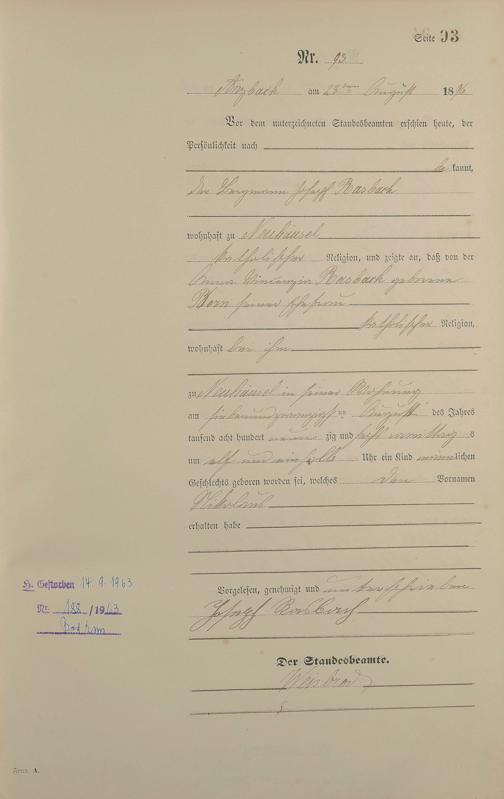 Seite 93
Nr. 93
Arzbach am 28ten August 1896
Vor dem unterzeichneten Standesbeamten erschien heute, der
Persönlichkeit nach
be kannt,
der Bergmann Joseph Rasbach
wohnhaft zu Neuhäusel
katholischer Religion, und zeigte an, daß von der
Anna Vincenzia Rasbach geborene
Born seiner Ehefrau
katholischer Religion,
wohnhaft bei ihm
zu Neuhäusel in seiner Wohnung
am siebenundzwanzigsten August des Jahres
tausend acht hundert neun zig und sechs vormittags
um elf und einhalb Uhr ein Kind männlichen
Geschlechts geboren worden sei, welches den Vornamen
Nikolaus
erhalten habe
Vorgelesen, genehmigt und unterschrieben
Joseph Rasbach
Der Standesbeamte.
Weisbrod
H. Gestorben 14.9.1963
Nr. 188/1963
Form. A.